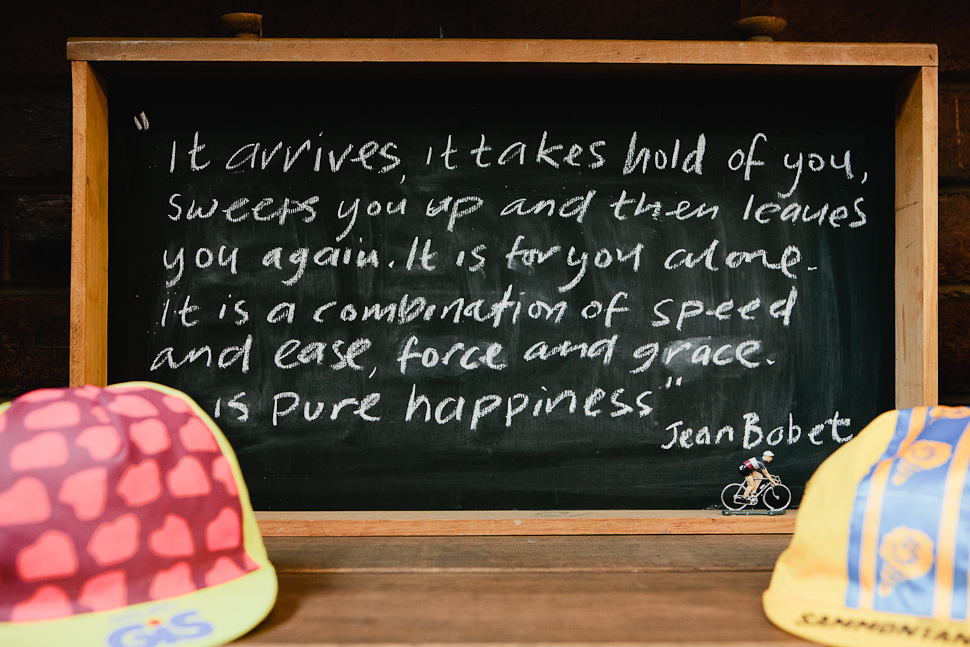 "It arrives, it takes hold of you,
sweeps you up and then leaves
you again. It is for you alone.
It is a combination of speed
and ease, force and grace.
is pure happiness"
Jean Bobet
GiS
SAMMONTAN